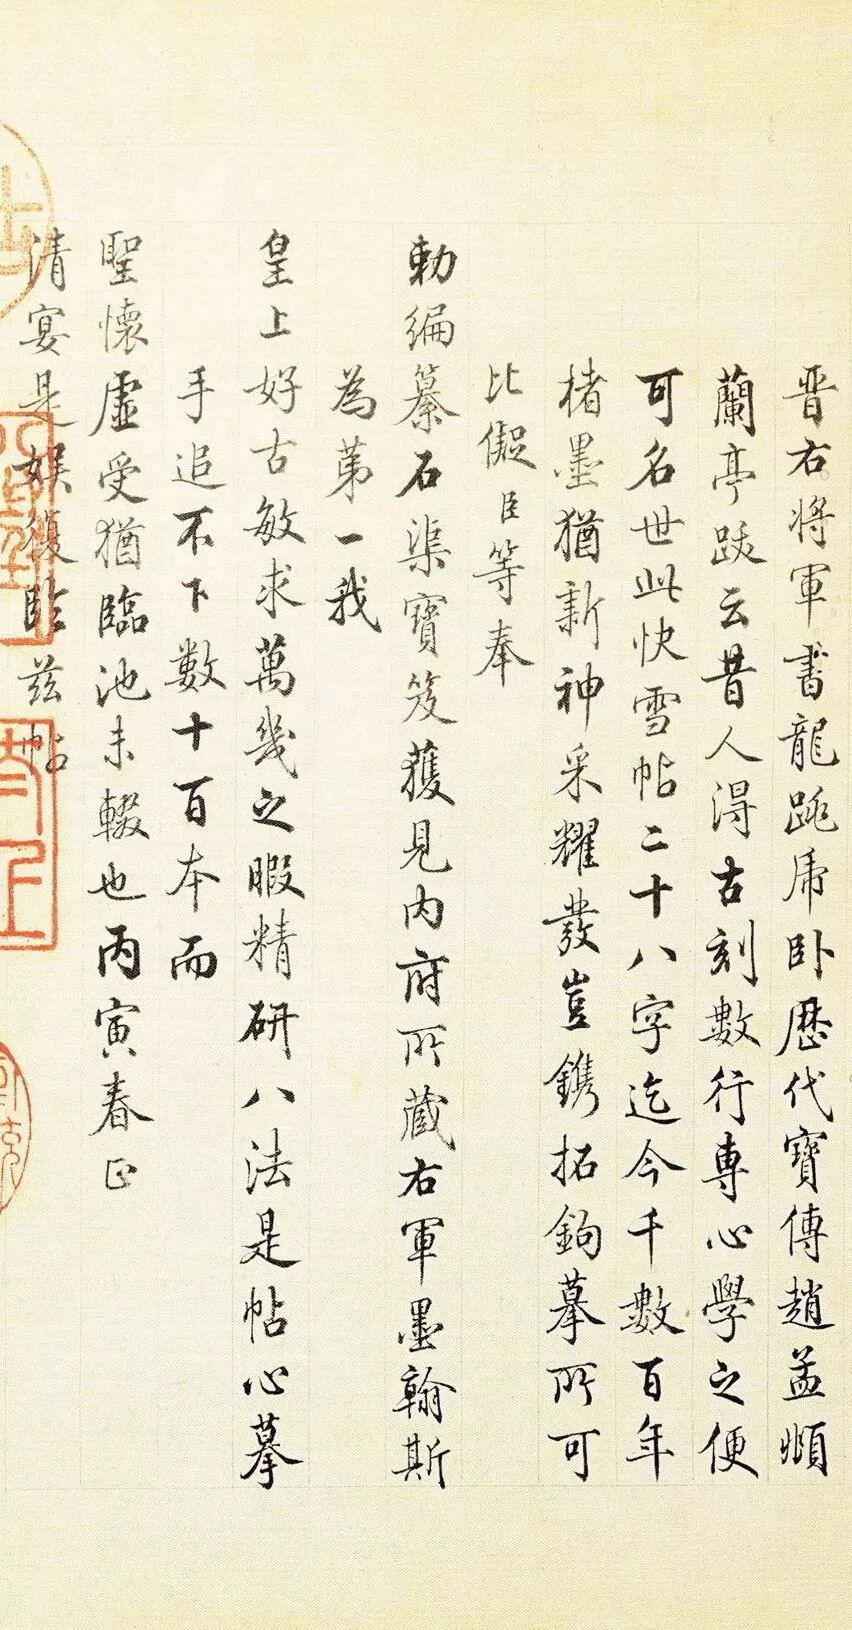 晋右将軍書龍跳席卧歷代寶傳趙孟頫
蘭亭跋云昔人淂古刻數行專心學之便
可名世此快雪帖二十八字迄今千數百年
楮墨猶新神采耀發豈鐫拓鉤摹所可
比儗臣等奉
勅編纂石渠寶笈獲見内府所蔵右軍墨翰斯
為苐一我
皇上好古敏求萬幾之暇精研八法是帖心摹
手追不下數十百本而
聖懷虛受猶臨池未輟也丙寅春正
清宴是娱復臨兹帖